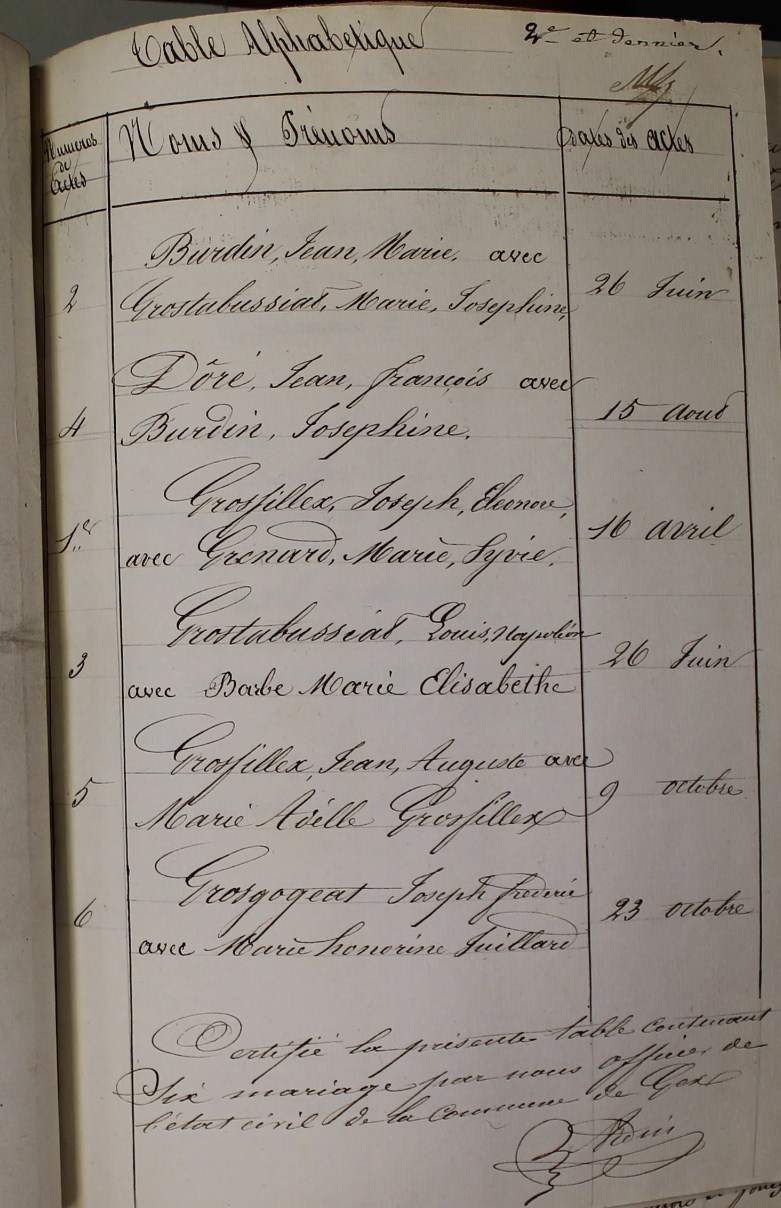 Table Alphabetique
2e et dernier.
Numeros
de
Actes
Noms & Prénoms
dates des actes
Burdin, Jean, Marie, avec
2 Grostabussiat, Marie, Josephine, 26 Juin
Dôré, Jean, françois avec
4 Burdin, Josephine. 15 aout
Grosfillex, Joseph, Eleonore,
1er avec Grenard, Marie, Sylvie. 16 avril
Grostabussiat, Louis, Napoléon
3 avec Barbe Marie Elisabethe 26 Juin
Grosfillex, Jean, Auguste avec
5 Marie Adélle Grosfillex 9 octobre
Grosgogeat Joseph frederic
6 avec Marie honorine Juillard 23 octobre
Certifié la présente table contenant
Six mariage par nous officier de
l'état civil de la Commune de